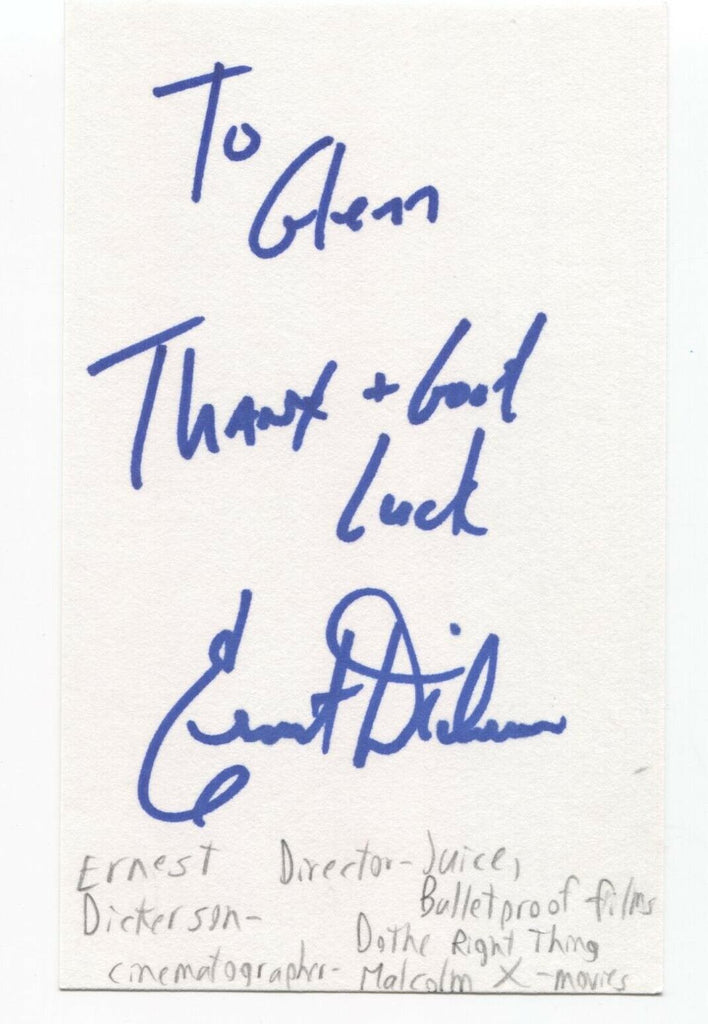 To
Glenn
Thanx + Good
Luck
Ernest Dickerson
Ernest Director-Juice,
Bulletproof films
Dickerson-
Do the Right Thing
cinematographer- Malcolm X -movies